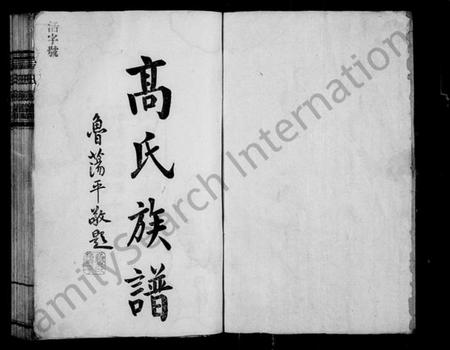 高氏族譜
魯蕩平敬題
活字號
FamilySearch International